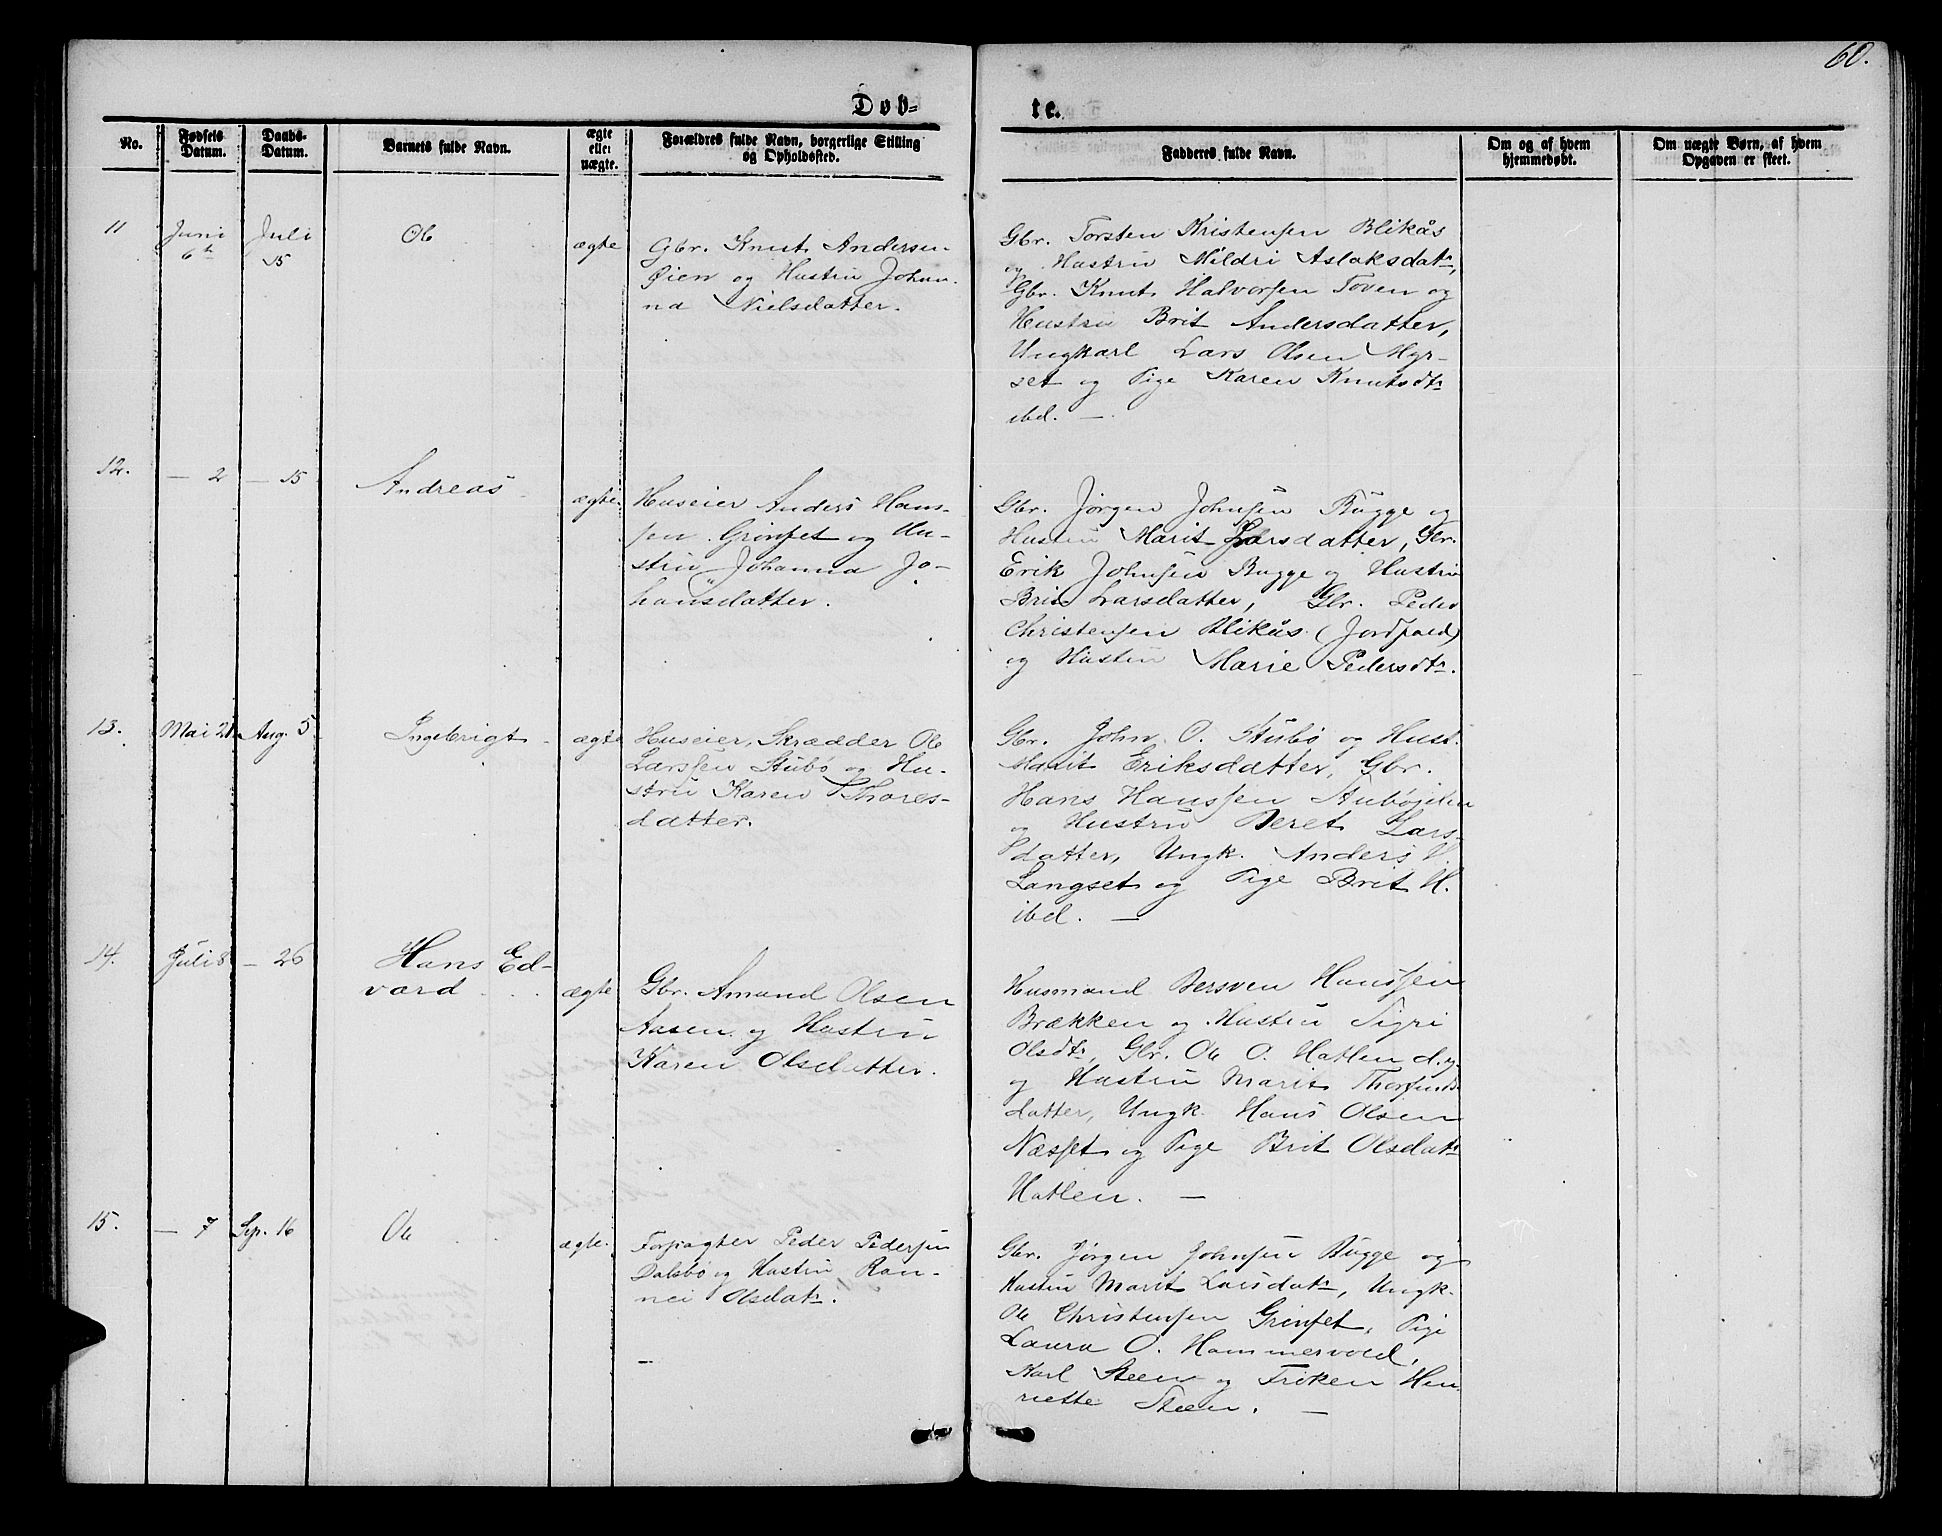 60.
Døb-
te.
No.
Fødsels Datum.
Daabs-Datum.
Barnets fulde Navn.
ægte eller uægte.
Forældres fulde Navn, borgerlige Stilling og Opholdssted.
Fadderes fulde Navn.
Om og af hvem hjemmedøbt.
Om uægte Børn, af hvem Opgaven er skeet.
11 Juni 6te Juli 15 Ole ægte
Gbr. Knut Andersen
Øien og Hustru Johan-
na Nielsdatter.
Gbr. Torsten Kristensen Blikås
og Hustru Mildri Aslaksdatr,
Gbr. Knut Halvorsen Toven og
Hustru Brit Andersdatter,
Ungkarl Lars Olsen Myr-
set og Pige Karen Knutsdtr
ibd. —
12. — 2 — 15 Andreas ægte
Huseier Anders Hans-
sen Grønset og Hu-
stru Johanna Jo-
hansdatter.
Gbr. Jørgen Johnsen Bugge og
Hustru Marit Larsdatter, Gbr.
Erik Johnsen Bugge og Hustru
Brit Larsdatter, Gbr. Peder
Christensen Blikås (Jordfald)
og Hustru Marie Pedersdtr.
13. Mai 21 Aug. 5 Ingebrigt ægte
Huseier, Skrædder Ole
Larssen Stubø og Hu-
stru Karen Thores-
datter.
Gbr. John O. Stubø og Hust.
Marit Eriksdatter, Gbr.
Hans Hanssen
og Hustru Beret Lars-
datter, Ungk. Anders H.
Langset og Pige Brit H.
ibd. —
14. Juli 8 — 26 Hans Ed-
vard ægte
Gbr. Amund Olsen
Aasen og Hustru
Karen Olsdatter.
Husmand Bersven Hanssen
Brækken og Hustru Sigri
Olsdtr, Gbr. Ole O. Hatlen d.y.
og Hustru Marit Thorfinds-
datter, Ungk. Hans Olsen
Næsset og Pige Brit Olsdatr
Hatlen. —
15. — 7 Sep. 16 Ole ægte.
Forpagter Peder Pedersen
Dalsbø og Hustru Ran-
nei Olsdatr.
—
Gbr. Jørgen Johnsen Bugge og
Hustru Marit Larsdatr, Ungk.
Ole Christensen Grønset, Pige
Laura O. Hammervold,
Karl Steen og Frøken Hen-
riette Steen. —